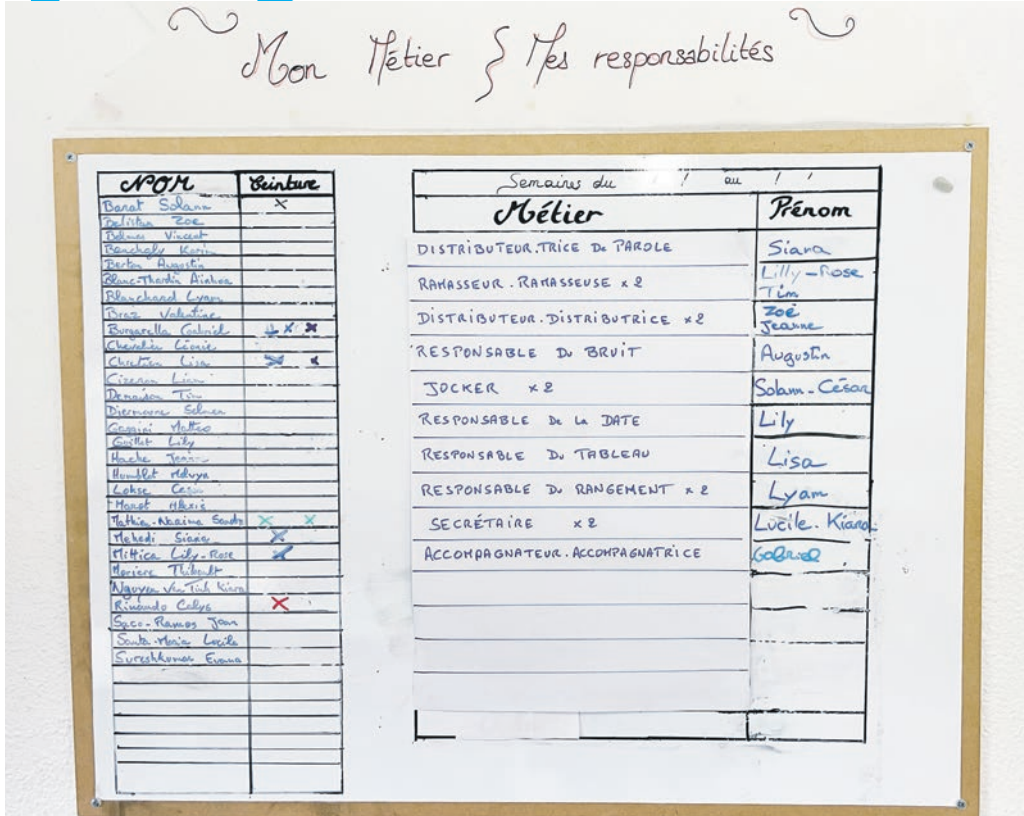 Mon Métier } Mes responsabilités
NOM Ceinture
Barat Solann X
Zoé
Vincent
Karim
Berton Augustin
Blanc-Thardin
Blanchard Lyam
Braz Valentine
Burgarella Gabriel X X
Chevalier Léonie
Chretien Lisa
Cizeron
Tim
Matteo
Guillet Lily
Hache
Humblot
Lohse
Sandro X X
Mehadi Siara X
Mittica Lily-Rose
Thibault
Nguyen Kiara
Rinaudo X
Saco-Ramos Joan
Santa-Maria Lucile
Sureshkumar
Semaines du / / au / /
Métier Prénom
DISTRIBUTEUR.TRICE DE PAROLE Siara
RAMASSEUR.RAMASSEUSE x 2 Lilly-Rose
Tim
DISTRIBUTEUR.DISTRIBUTRICE x 2 Zoé
Jeanne
RESPONSABLE DU BRUIT Augustin
JOCKER x 2 Solann-César
RESPONSABLE DE LA DATE Lily
RESPONSABLE DU TABLEAU Lisa
RESPONSABLE DU RANGEMENT x 2 Lyam
SECRÉTAIRE x 2 Lucile.Kiara
ACCOMPAGNATEUR.ACCOMPAGNATRICE Gabriel